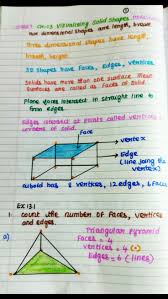 Ch-13 Visualising Solid Shapes
Two dimensional shapes have length, breadth
Three dimensional shapes have length,
breadth, height.
3D shapes have Faces, edges, vertices
Solids have more than one surface. These
surfaces are called as Faces of solid.
Plane faces intersect in straight line to
form edges.
Edges intersect at points called vertices
corners of solid.
Face
vertex
Edge
(line joining the
vertex)
cuboid has 8 vertices, 12 edges, 6 faces
Ex 13.1
1. Count the number of Faces, vertices
and edges.
a)
Triangular pyramid
Faces = 4
vertices = 4 (•)
Edges = 6 (lines)